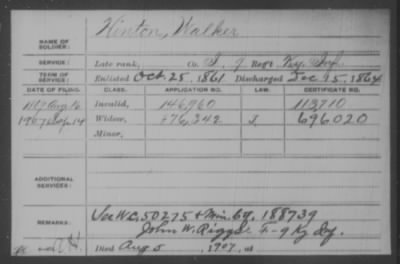 Hinton, Walker
NAME OF SOLDIER:
SERVICE: Late rank, Co. I, 9 Reg't Ky. Inf.
TERM OF SERVICE: Enlisted Oct. 25, 1861 Discharged Dec 15, 1864
DATE OF FILING. CLASS. APPLICATION NO. LAW. CERTIFICATE NO.
Aug 16 Invalid, 146,960 113,710
1907 Sep. 14 Widow, 876,242 J. 696,020
Minor,
ADDITIONAL SERVICES:
REMARKS: See WC. 50275 + Min. Ctf. 188739
John W. Riggs F-9 Ky Inf.
Died Aug 5, 1907, at